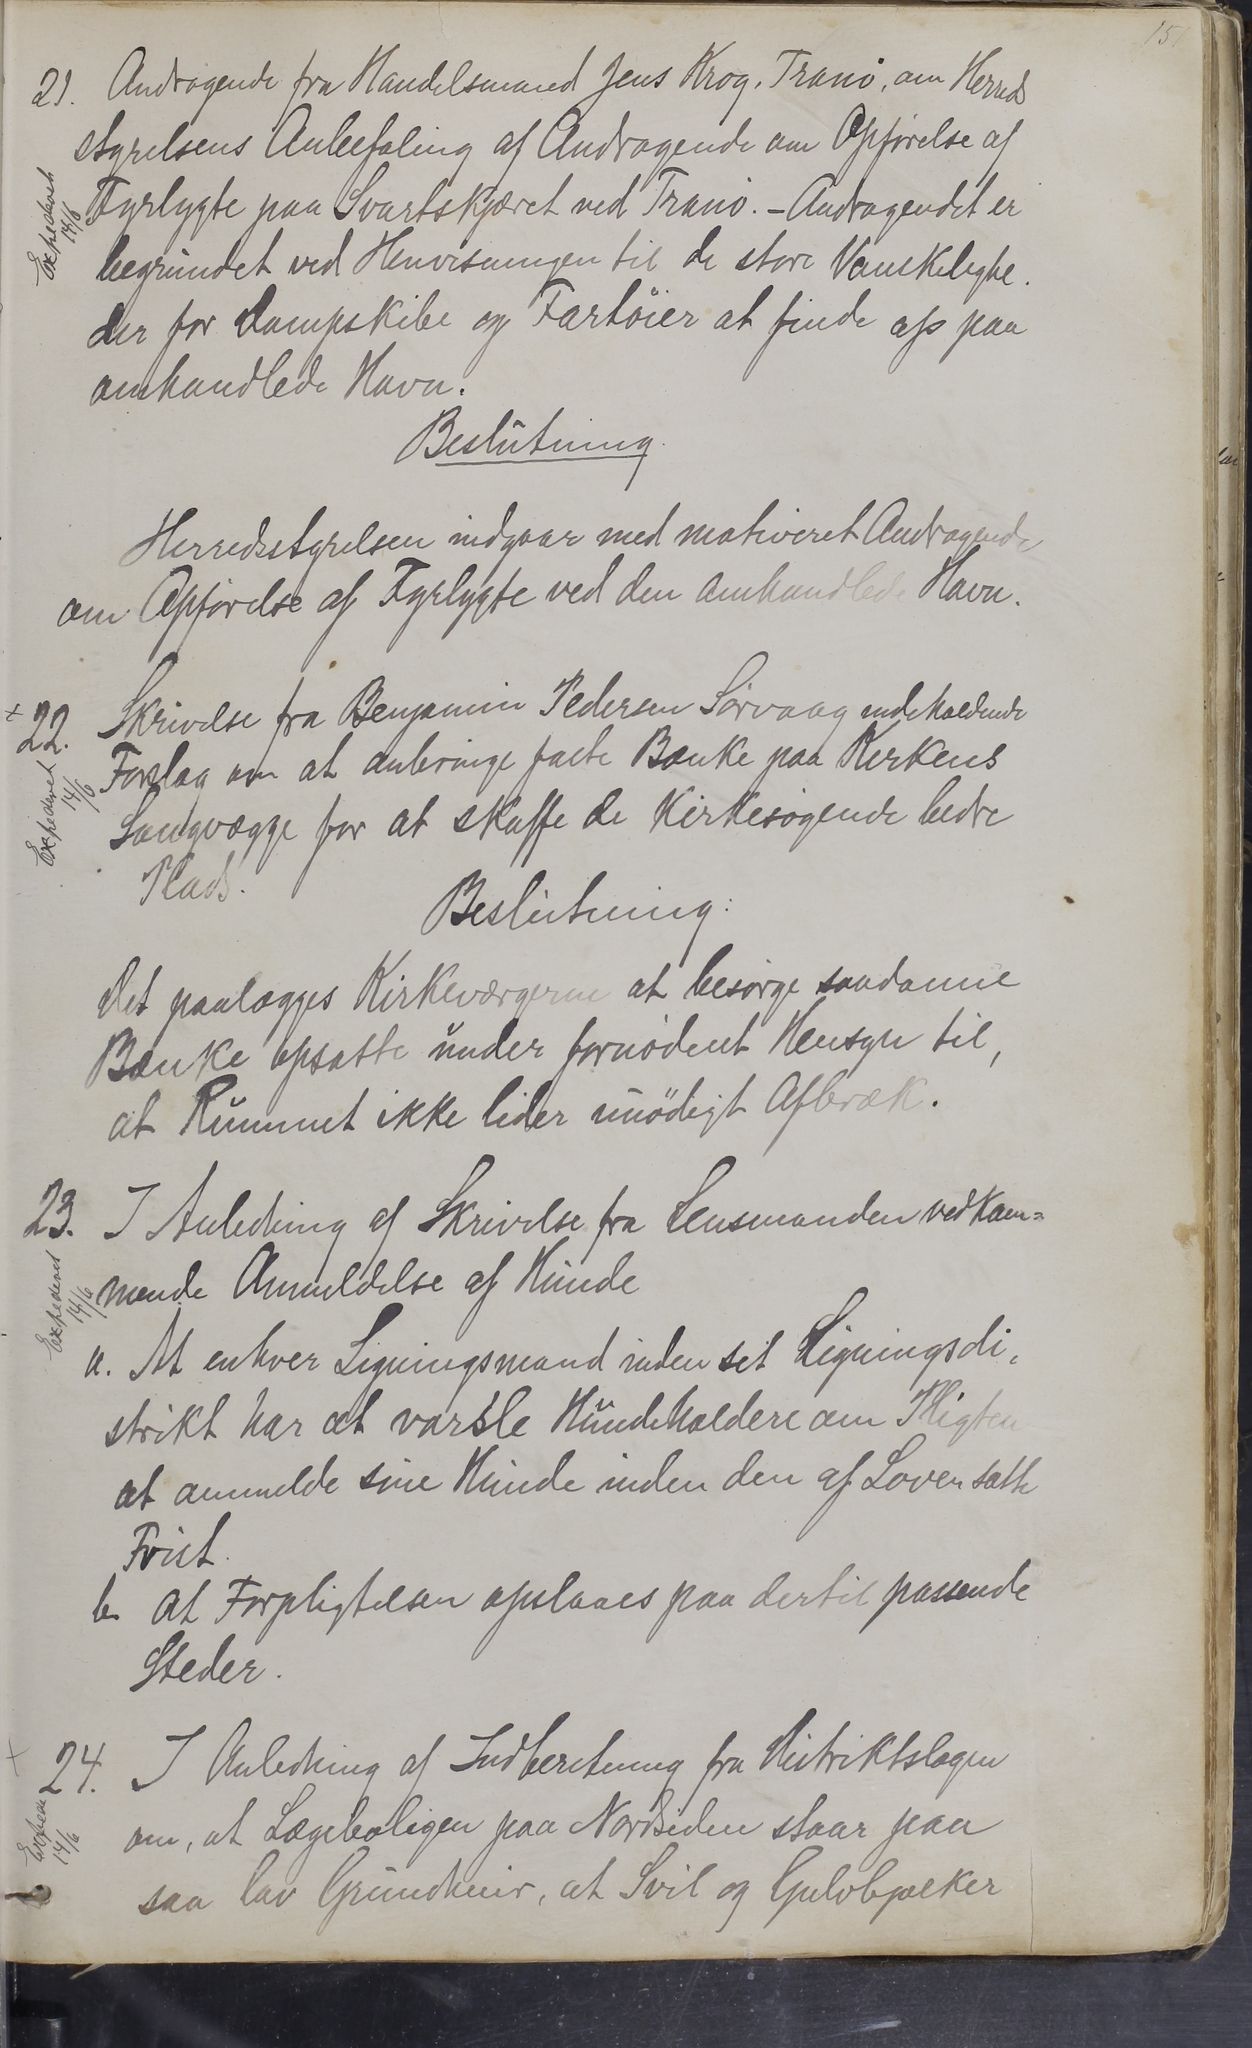 151
21. Andragende fra Handelsmand Jens Krog, Tranö, om Herreds
styrelsens Anbefaling af Andragende om Opförelse af
Fyrlygte paa Svartskjæret ved Tranö. - Andragendet er
begrundet ved Henvisningen til de store Vanskelighe-
der for Dampskibe og Fartöier at finde op paa
omhandlede Havn.
Expederet 14/6
Beslutning.
Herredsstyrelsen indgaar med motiveret Andragende
om Opförelse af Fyrlygte ved den omhandlede Havn.
x
22. Skrivelse fra Benjamin Pedersen Sörvaag indeholdende
Forslag om at anbringe faste Bænke paa Kirkens
Langvægge for at skaffe de Kirkesögende bedre
Plads.
Expederet 14/6
Beslutning:
Det paalægges Kirkeværgerne at besörge saadanne
Bænke opsatte under fornödent Hensyn til,
at Rummet ikke lider unödigt Afbræk.
23. I Anledning af Skrivelse fra Lensmanden vedkom=
mende Anmeldelse af Hunde
Expederet 14/6
a. At enhver Ligningsmand inden sit Ligningsdi-
strikt har at varsle Hundeholdere om Pligten
at anmelde sine Hunde inden den af Loven satte
Frist.
b. at Forpligtelsen opslaaes paa dertil passende
Steder.
x
24. I Anledning af Indberetning fra Distriktslægen
om, at Lægeboligen paa Nordsiden staar paa
saa lav Grundmur, at Svil og Gulvbjælker
Expede 14/6